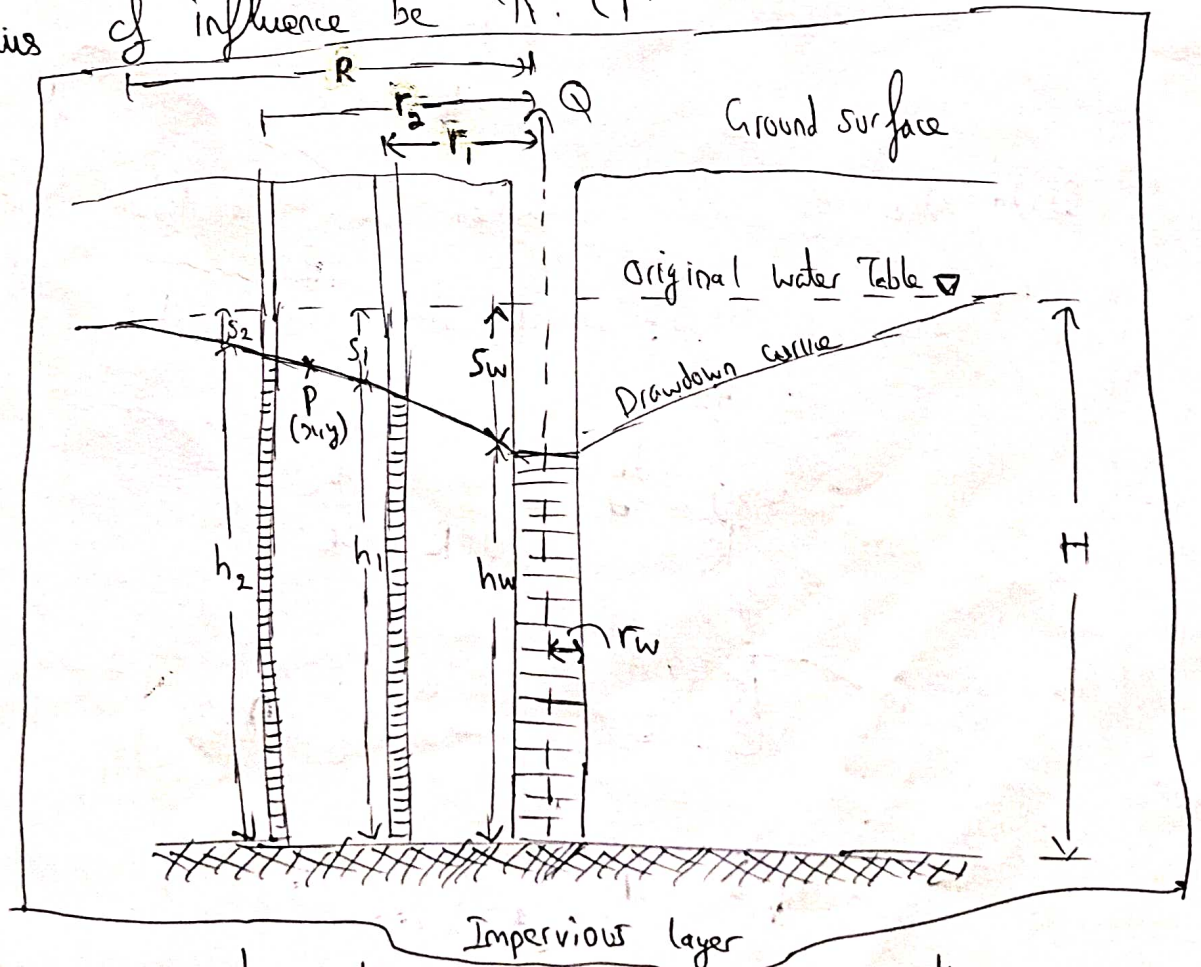 ius of influence be R.
R
r₂ Q
r₁ Ground surface
Original water Table
S₂ S₁ Sw
P Drawdown curve
(x,y)
h₂ h₁ hw H
rw
Impervious layer